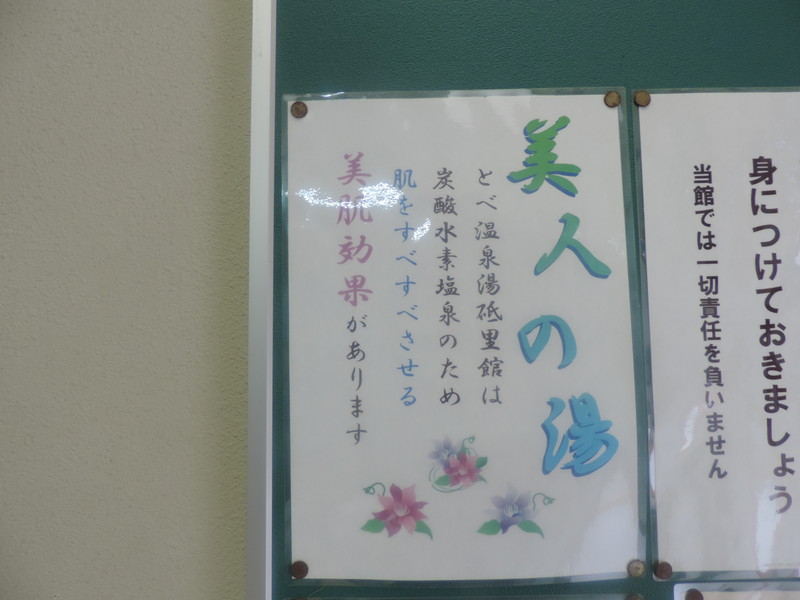 身につけておきましょう
当館では一切責任を負いません
美人の湯
とべ温泉湯砥里館は
炭酸水素塩泉のため
肌をすべすべさせる
美肌効果があります